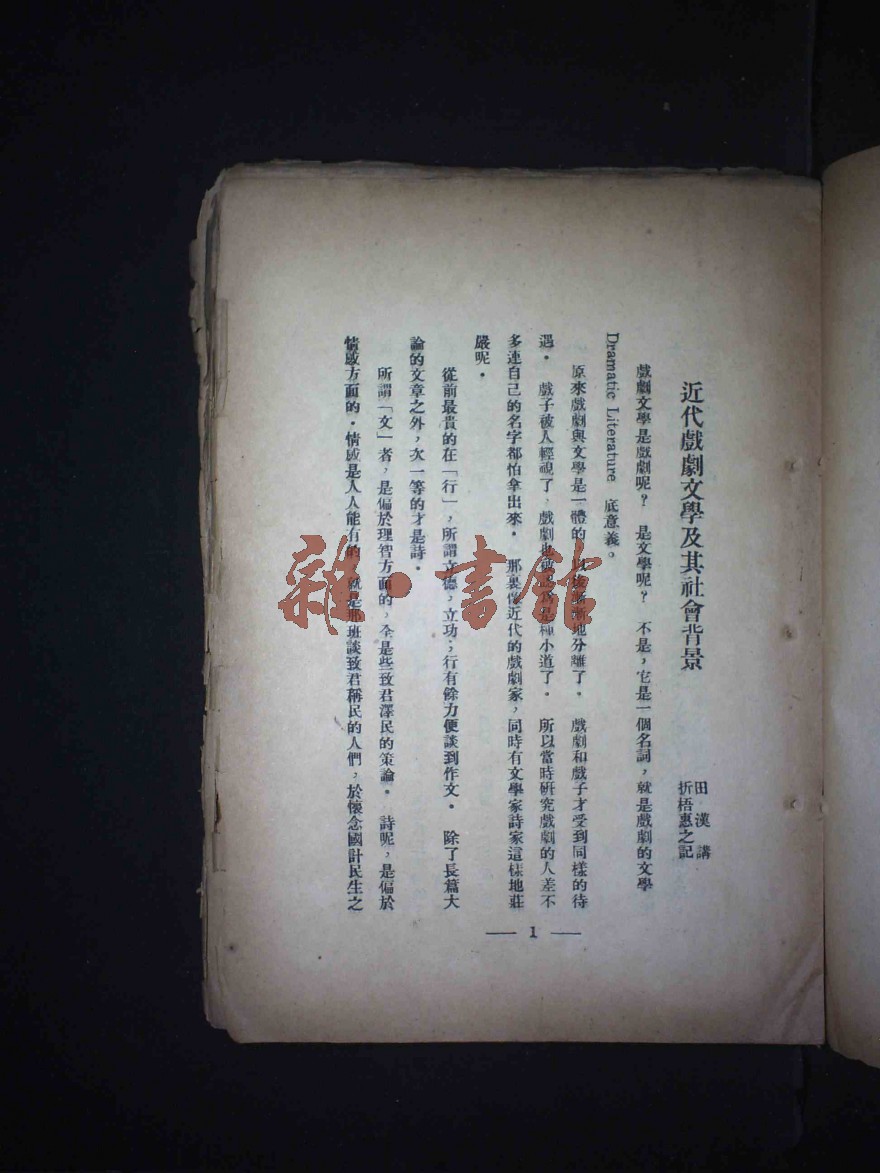 近代戲劇文學及其社會背景
田漢講
折梧惠之記
戲劇文學是戲劇呢？　是文學呢？　不是，它是一個名詞，就是戲劇的文學
Dramatic Literature 底意義。
原來戲劇與文學是一體的，以後漸漸地分離了。　戲劇和戲子才受到同樣的待
遇。　戲子被人輕視了，戲劇也被認爲是種小道了。　所以當時研究戲劇的人差不
多連自己的名字都怕拿出來。　那裏像近代的戲劇家，同時有文學家詩家這樣地莊
嚴呢。
從前最貴的在「行」，所謂立德，立功；行有餘力便談到作文。　除了長篇大
論的文章之外，次一等的才是詩。
所謂「文」者，是偏於理智方面的，全是些致君澤民的策論。　詩呢，是偏於
情感方面的。情感是人人能有的，就是那班談致君稱民的人們，於懷念國計民生之
— 1 —
雜·書館